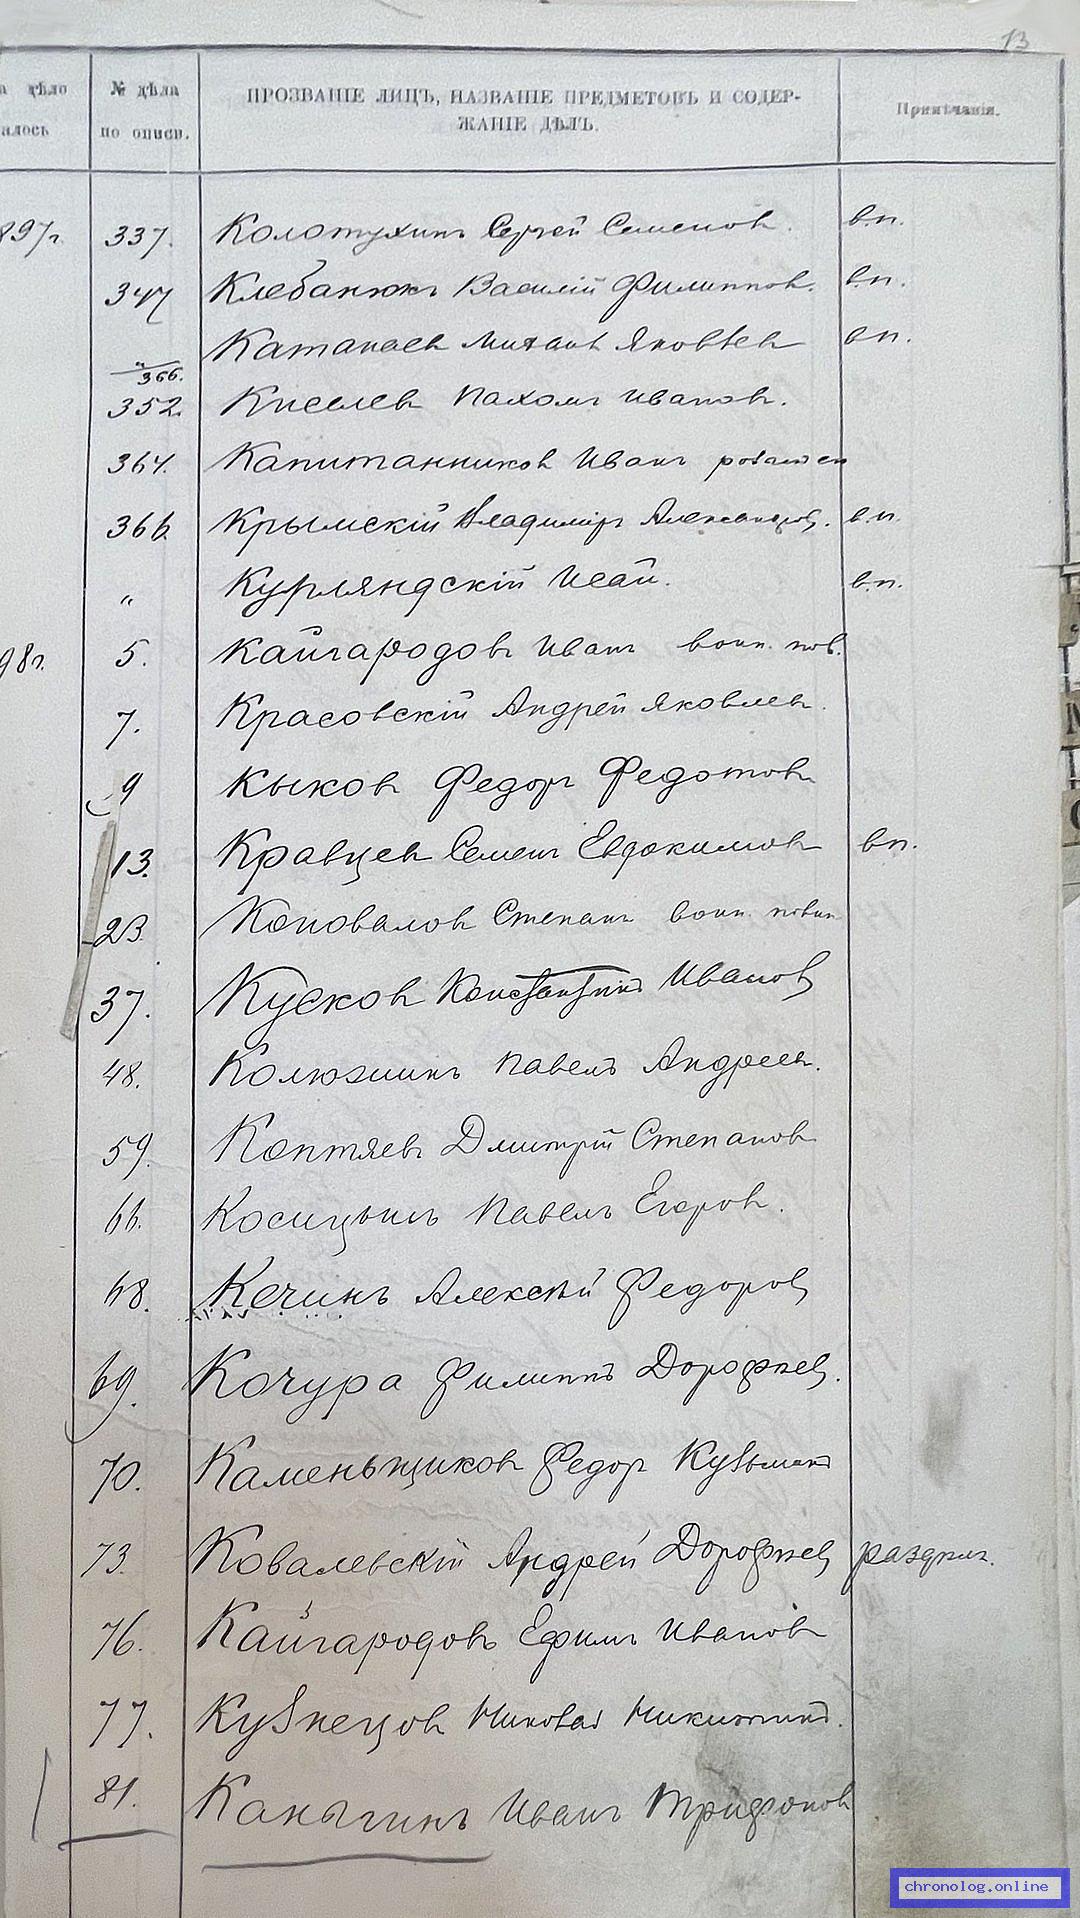 13
а дѣло
алось
№ дѣла
по описи.
ПРОЗВАНІЕ ЛИЦЪ, НАЗВАНІЕ ПРЕДМЕТОВЪ И СОДЕР-
ЖАНІЕ ДѢЛЪ.
Примѣчанія.
897г. 337. Колотухинъ Сергей Семенов. в.п.
347 Клебанюкъ Василій Филиппов. в.п.
"/366. Катанаев Михаил Яковлев в.п.
352. Киселев Пахомъ Иванов.
364. Капитанников Иванъ
366. Крымскій Владиміръ Александров. в.п.
" Курляндскій Исай. в.п.
98г. 5. Кайгародовъ Иванъ воин. пов.
7. Красовскій Андрей Яковлев.
9 Кыков Федоръ Федотов
13. Кравцев Семенъ Евдокимов вп.
23. Коновалов Степанъ воин. повин
37. Кусков Константинъ Иванов
48. Колюжнинъ Павелъ Андреев.
59. Коптяевъ Дмитрій Степанов
66. Косицынъ Павелъ Егоров.
68. Кечинъ Алексѣй Федоров
69. Кочура Филиппъ Дорофѣев.
70. Каменьщиков Федор Кузьмин
73. Ковалевскій Андрей Дорофѣев раздѣлъ.
76. Кайгародовъ Ефимъ Иванов
77. Кузнецов Николай Никитинъ.
81. Каныгинъ Иванъ Трифонов
chronolog.online